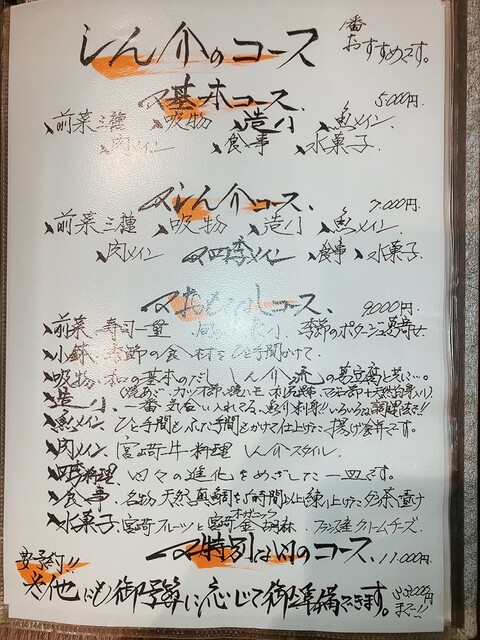 しん介のコース
1番
おすすめです。
基本コース、 5,000円
前菜三種 吸物 造り 魚メイン、
肉メイン 食事 水菓子、
しん介コース、 7,000円
前菜三種 吸物 造り 魚メイン
肉メイン 四季メイン 食事 水菓子
おもてなしコース、 9,000円
前菜 寿司一貫 季節のポタージュ
小鉢、季節の食材をひと手間かけて、
吸物、和の基本のだし しん介流の葛豆腐と共に…。
造り、一番気合い入れてる、
魚メイン ひと手間もふた手間もかけて仕上げた、揚げ餅です。
肉メイン 宮崎牛料理 しん介スタイル、
四季料理 日々の進化をめざした一皿です。
食事、名物 天然真鯛を 時間以上練り上げた 茶漬け
水菓子、宮崎フルーツと宮崎 オーガニック 金胡麻、フランス産クリームチーズ、
要予約!!
特別な日のコース、11,000円
其他にも御予算に応じて御準備できます。
まで!!